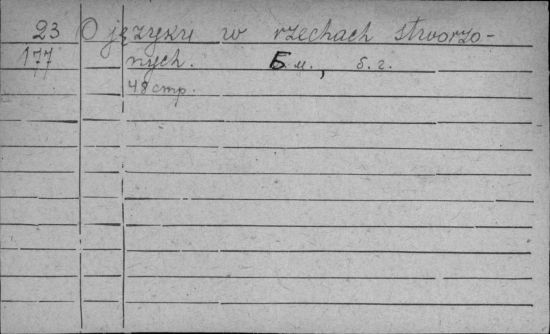 23 O języku w rzechach stworzo-
177 nych. Б.м., б.г.
48 стр.